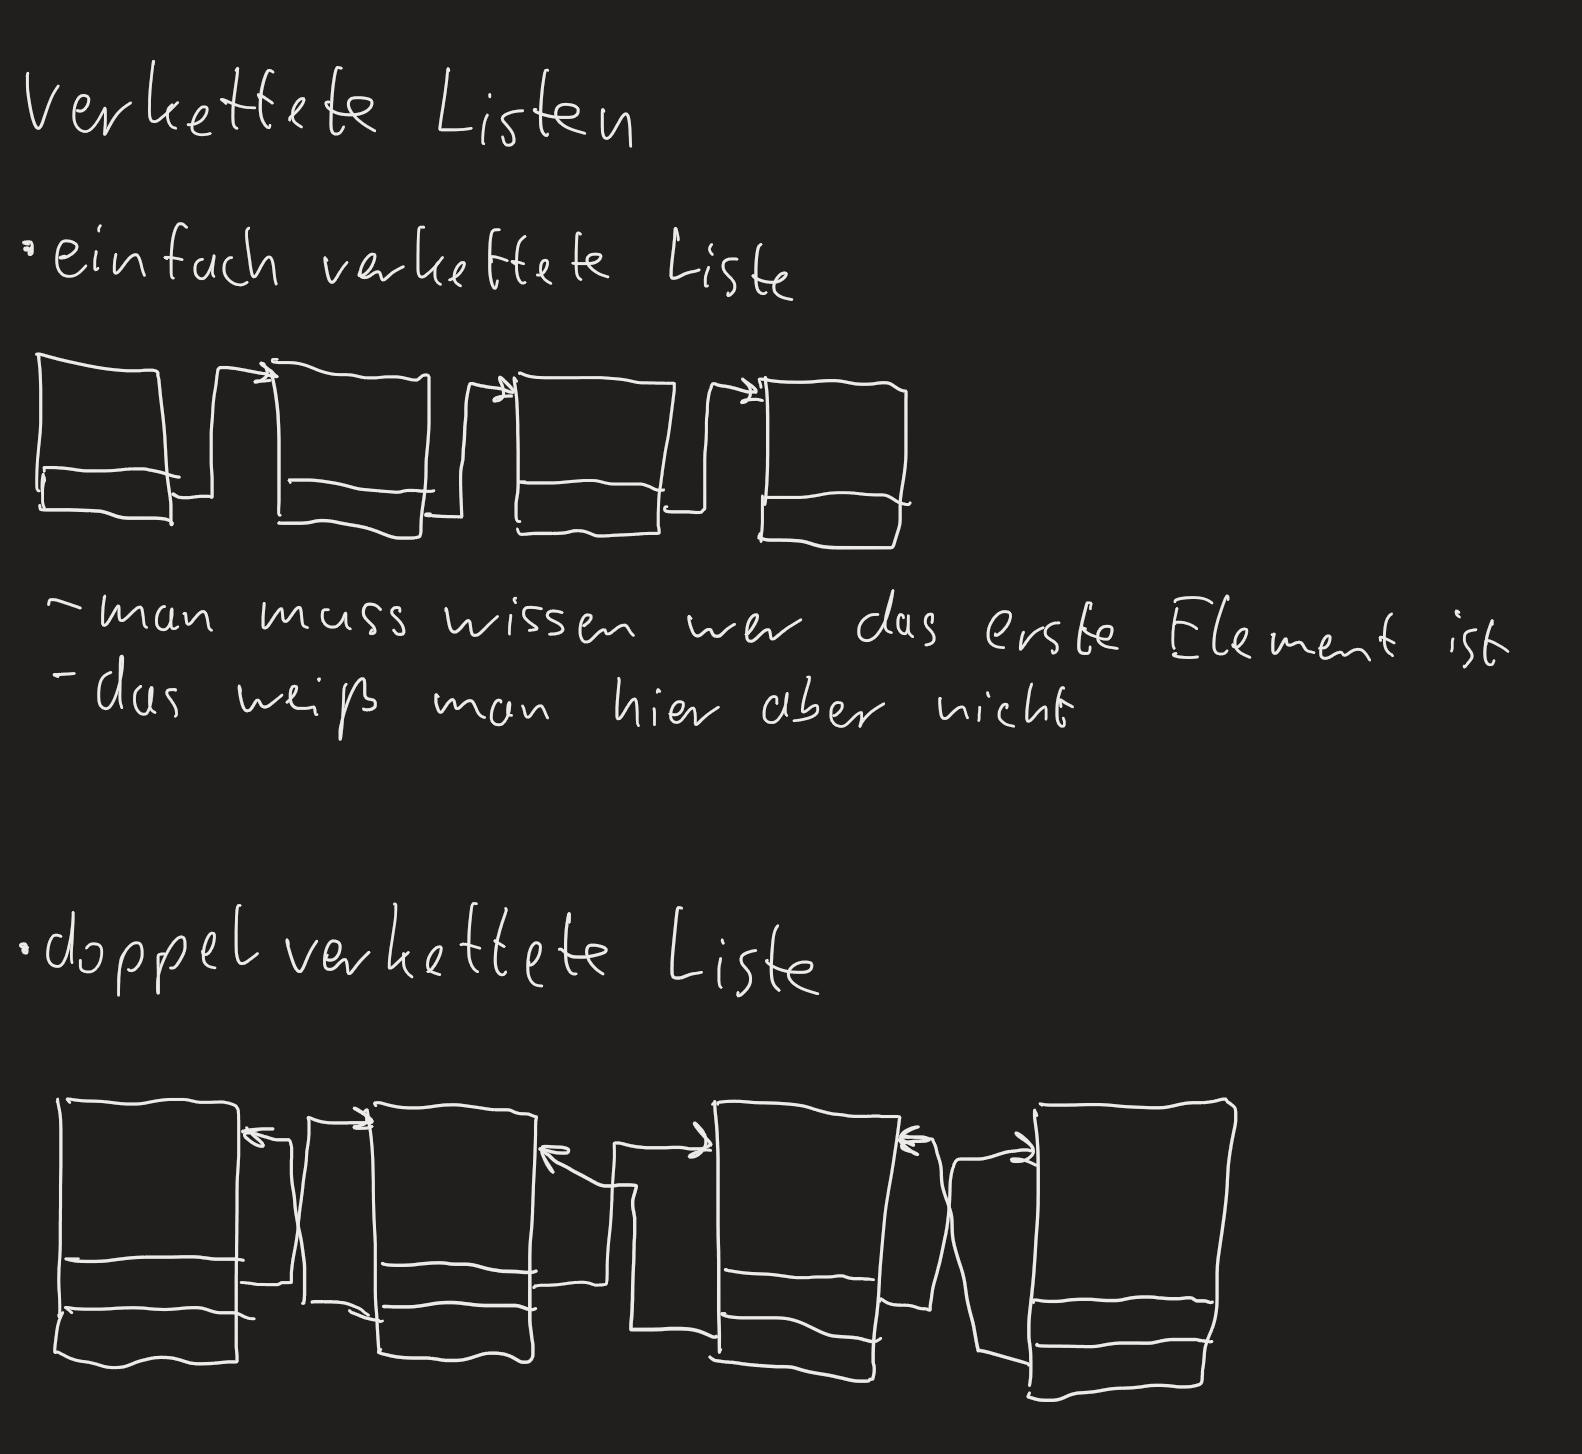 Verkettete Listen
• einfach verkettete Liste
- man muss wissen wer das erste Element ist
- das weiß man hier aber nicht
• doppel verkettete Liste